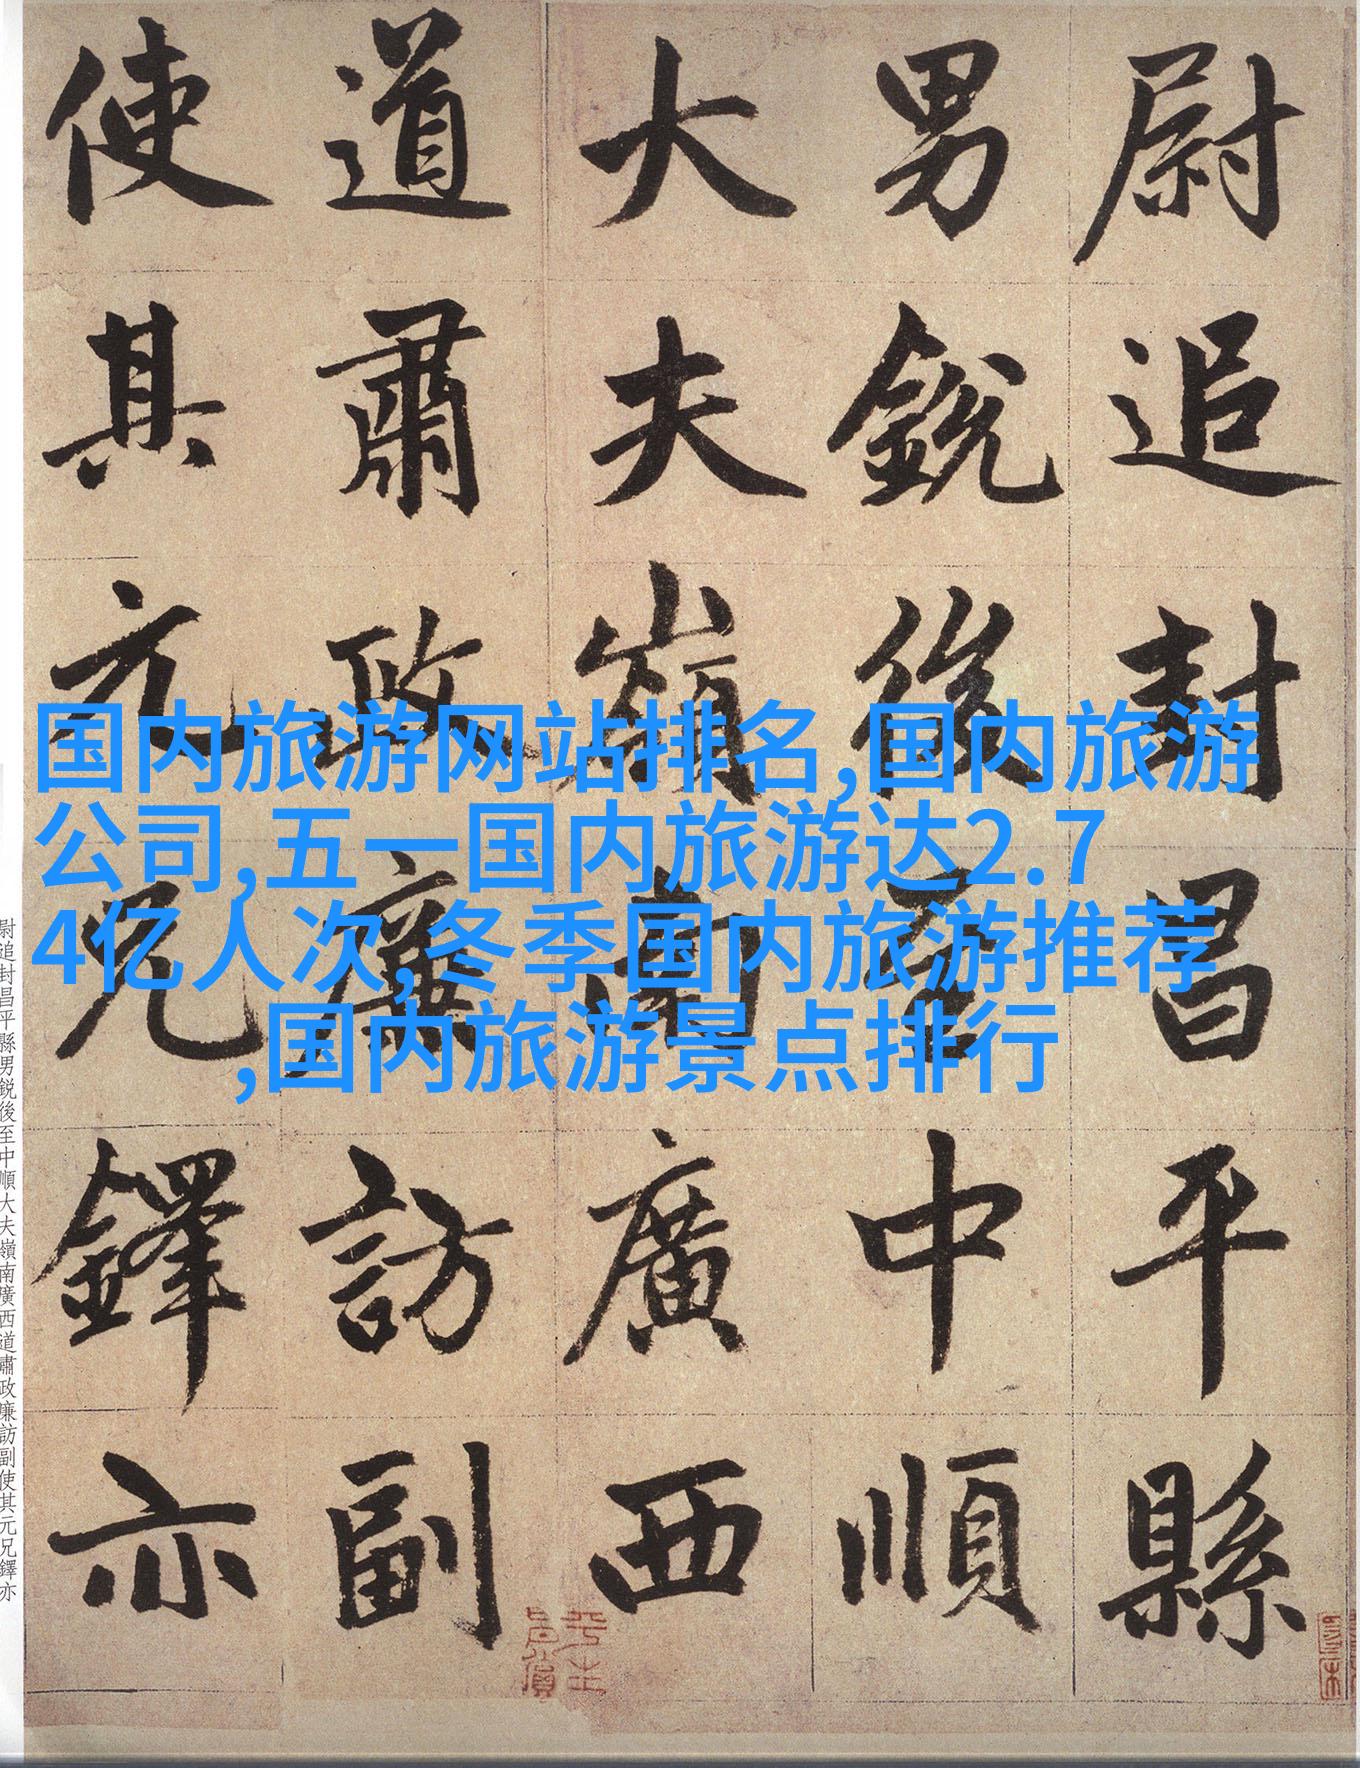 尉追封昌平縣
男銳後至中順
大夫嶺南廣西
道肅政廉訪副
使其元兄鐸亦
国内旅游网站排名,国内旅游
公司,五一国内旅游达2.7
4亿人次,冬季国内旅游推荐
,国内旅游景点排行
尉追封昌平縣男鋭後至中順大夫嶺南廣西道肅政廉訪副使其元兄鐸亦